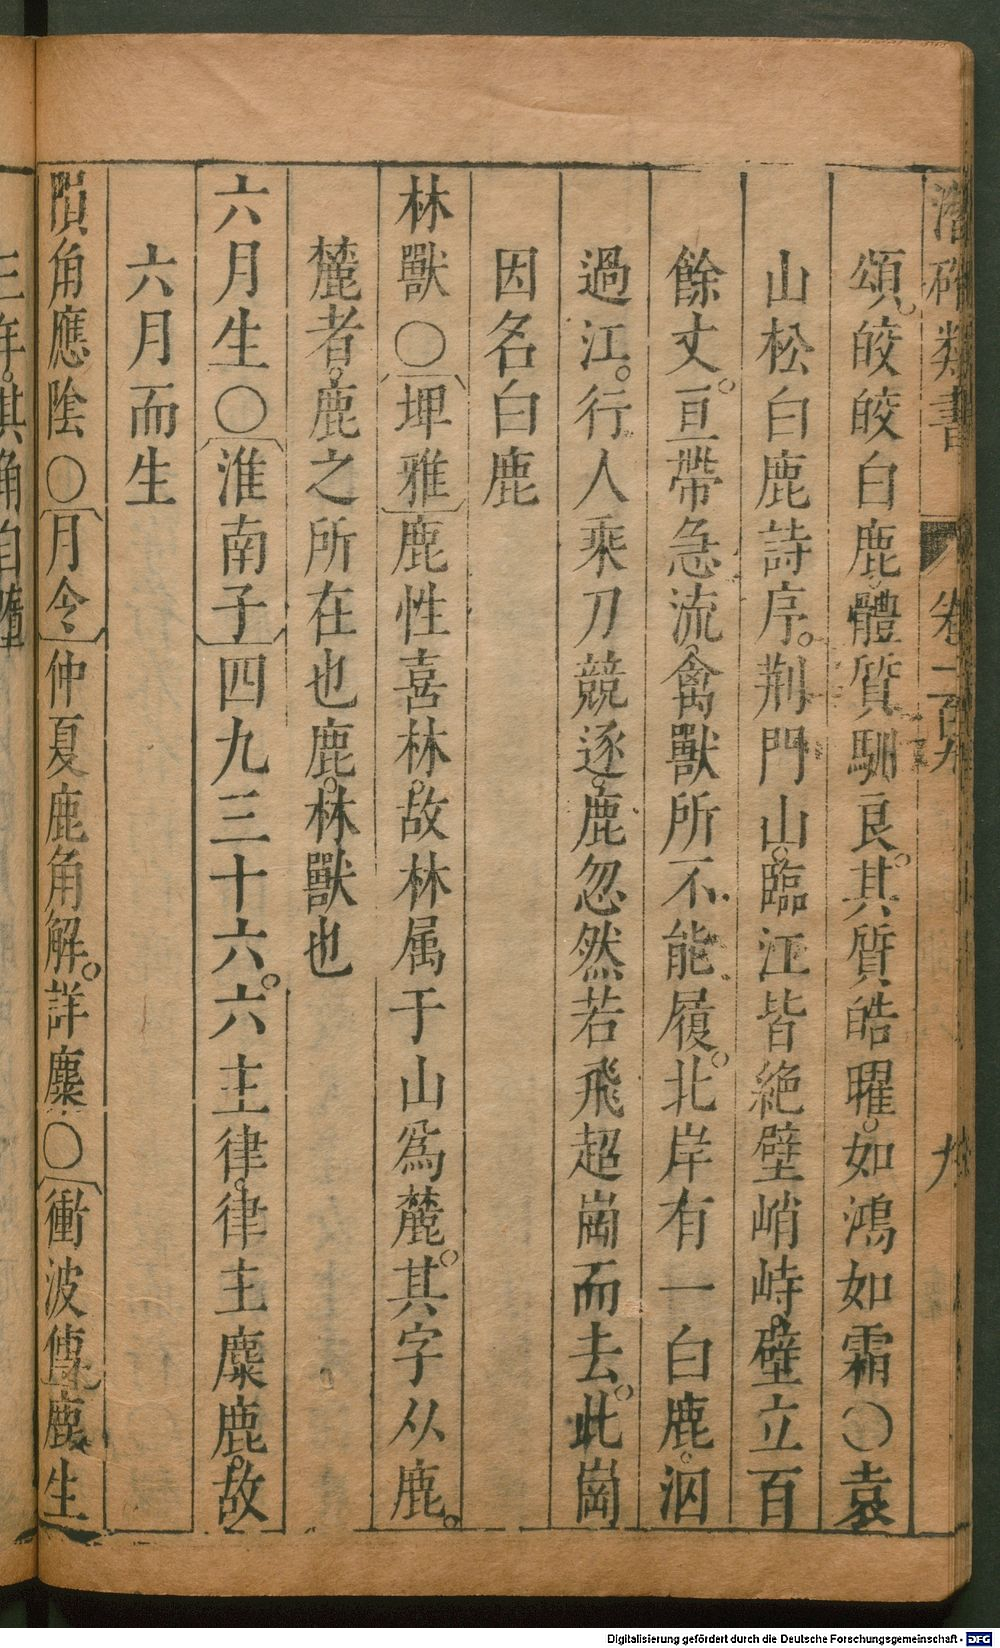 潛確類書 卷一百九 九
頌。皎皎白鹿。體質馴良。其質皓曜。如鴻如霜〇袁
山松白鹿詩序。荆門山。臨江皆絶壁峭峙。壁立百
餘丈。亘帶急流。禽獸所不能履。北岸有一白鹿。泅
過江。行人乘刀競逐。鹿忽然若飛超崗而去。此崗
因名白鹿
林獸〇〔埤雅〕鹿性喜林。故林属于山爲麓。其字从鹿。
麓者。鹿之所在也鹿。林獸也
六月生〇〔淮南子〕四九三十六。六主律。律主麋鹿。故
六月而生
隕角應陰〇〔月令〕仲夏鹿角解。詳麋〇〔衝波傳〕鹿生
三年。其角自墮
Digitalisierung gefördert durch die Deutsche Forschungsgemeinschaft - DFG